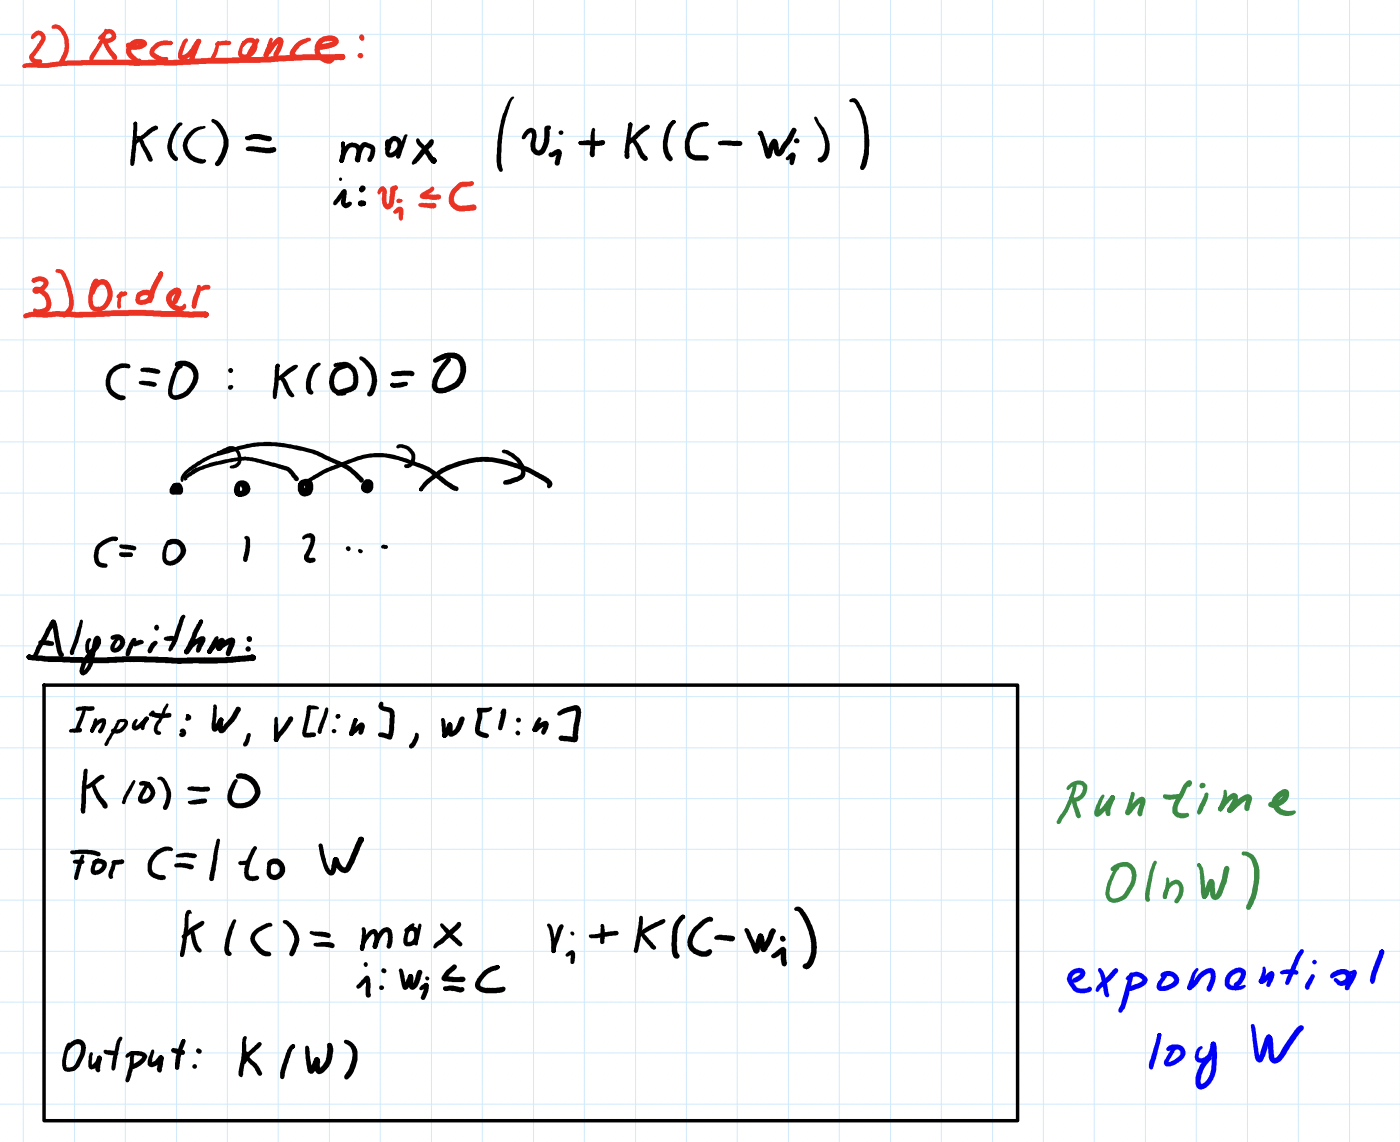 2) Recurance:
K(C) = max (v_i + K(C - w_i))
i: v_i ≤ C
3) Order
C=0 : K(0) = 0
C= 0 1 2 ...
Algorithm:
Input: W, v[1:n], w[1:n]
K(0) = 0
For C=1 to W
K(C) = max v_i + K(C-w_i)
i: w_i ≤ C
Output: K(W)
Runtime
O(nW)
exponential
log W